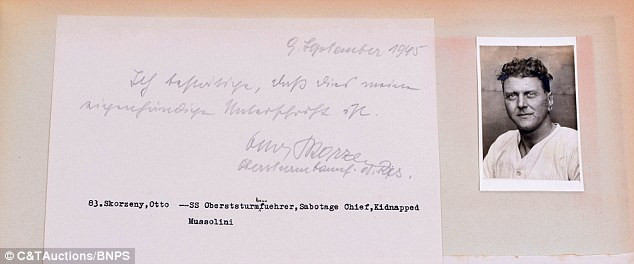 9. September 1945
Ich bestätige, daß dies meine
eigenhändige Unterschrift ist.
Otto Skorzeny
Obersturmbannf. d. Res.
83.Skorzeny,Otto —SS Oberststurmfuehrer,Sabotage Chief,Kidnapped
Mussolini
© C&TAuctions/BNPS